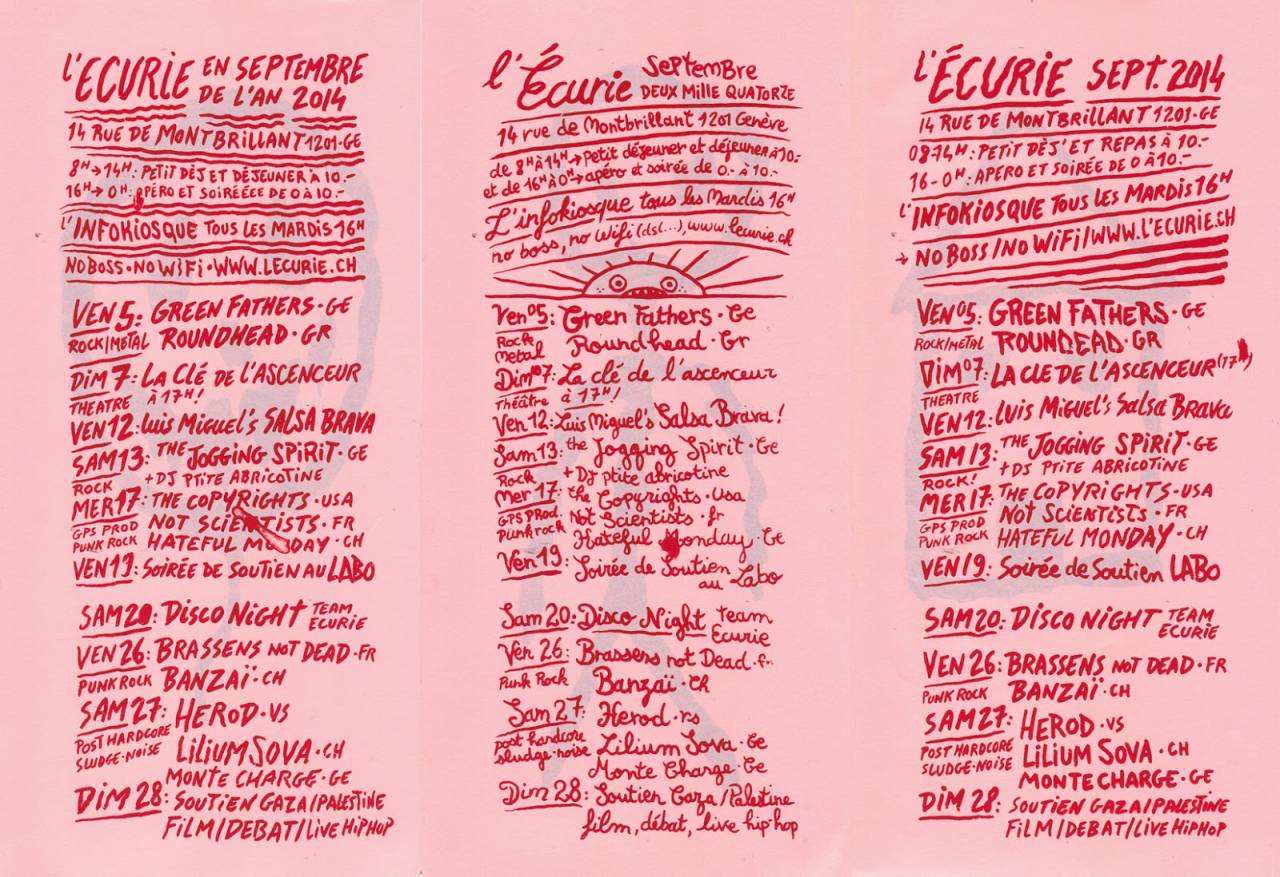 L'ECURIE EN SEPTEMBRE
DE L'AN 2014
14 RUE DE MONTBRILLANT 1201-GE
8H→14H: PETIT DÈJ ET DÉJEUNER À 10.-
16H→0H: APÉRO ET SOIRÉÉEE DE 0 À 10.-
L'INFOKIOSQUE TOUS LES MARDIS-16H
NO BOSS • NO WiFi • WWW.LECURIE.CH
VEN 5: GREEN FATHERS • GE
ROCK/METAL ROUNDHEAD • GR
DIM 7: LA CLÉ DE L'ASCENCEUR
THEATRE À 17H!
VEN 12: LUIS MIGUEL'S SALSA BRAVA
SAM 13: THE JOGGING SPIRIT • GE
ROCK + DJ PTITE ABRICOTINE
MER 17: THE COPYRIGHTS • USA
GPS PROD NOT SCIENTISTS • FR
PUNK ROCK HATEFUL MONDAY • CH
VEN 19: SOIRÉE DE SOUTIEN AU LABO
SAM 20: DISCO NIGHT TEAM ECURIE
VEN 26: BRASSENS NOT DEAD • FR
PUNK ROCK BANZAÏ • CH
SAM 27: HEROD • VS
POST HARDCORE LILIUM SOVA • CH
SLUDGE • NOISE MONTE CHARGE • GE
DIM 28: SOUTIEN GAZA/PALESTINE
FILM/DEBAT/LIVE HIPHOP
l'Écurie Septembre
DEUX MILLE QUATORZE
14 rue de Montbrillant 1201 Genève
de 8H À 14H→Petit déjeuner et déjeuner à 10.-
et de 16H À 0H→apéro et soirée de 0.- à 10.-
L'infokiosque tous les Mardis 16H
no boss, no wifi (dsl...), www.lecurie.ch
Ven 05: Green Fathers • Ge
Rock Metal Roundhead • Gr
Dim 07: La clé de l'ascenceur
Théâtre à 17H!
Ven 12: Luis Miguel's Salsa Brava!
Sam 13: the Jogging Spirit • Ge
Rock + DJ ptite abricotine
Mer 17: the Copyrights • Usa
GPS PROD. Not Scientists • fr
Punk rock Hateful Monday • Ge
Ven 19: Soirée de Soutien
au Labo
Sam 20: Disco Night Team Ecurie
Ven 26: Brassens not Dead • fr
Punk Rock Banzaï • Ch
Sam 27: Herod • vs
post hardcore Lilium Sova • Ge
sludge • noise Monte Charge • Ge
Dim 28: Soutien Gaza/Palestine
film, débat, live hip-hop
L'ÉCURIE SEPT. 2014
14 RUE DE MONTBRILLANT 1201-GE
08-14H: PETIT DÈJ' ET REPAS À 10.-
16-0H: APERO ET SOIRÉE DE 0 À 10.-
L'INFOKIOSQUE TOUS LES MARDIS 16H
→ NO BOSS/NO WIFI/WWW.L'ECURIE.CH
VEN 05: GREEN FATHERS • GE
ROCK/METAL ROUNDEAD • GR
DIM 07: LA CLE DE L'ASCENCEUR (17H)
THEATRE
VEN 12: LUIS MIGUEL'S SALSA BRAVA
SAM 13: THE JOGGING SPIRIT • GE
ROCK! + DJ PTITE ABRICOTINE
MER 17: THE COPYRIGHTS • USA
GPS PROD NOT SCIENTISTS • FR
PUNK ROCK HATEFUL MONDAY • CH
VEN 19: Soirée de Soutien LABO
SAM 20: DISCO NIGHT TEAM ECURIE
VEN 26: BRASSENS NOT DEAD • FR
PUNK ROCK BANZAÏ • CH
SAM 27: HEROD • VS
POST HARDCORE LILIUM SOVA • CH
SLUDGE • NOISE MONTE CHARGE • GE
DIM 28: SOUTIEN GAZA/PALESTINE
FILM/DEBAT/LIVE HIPHOP